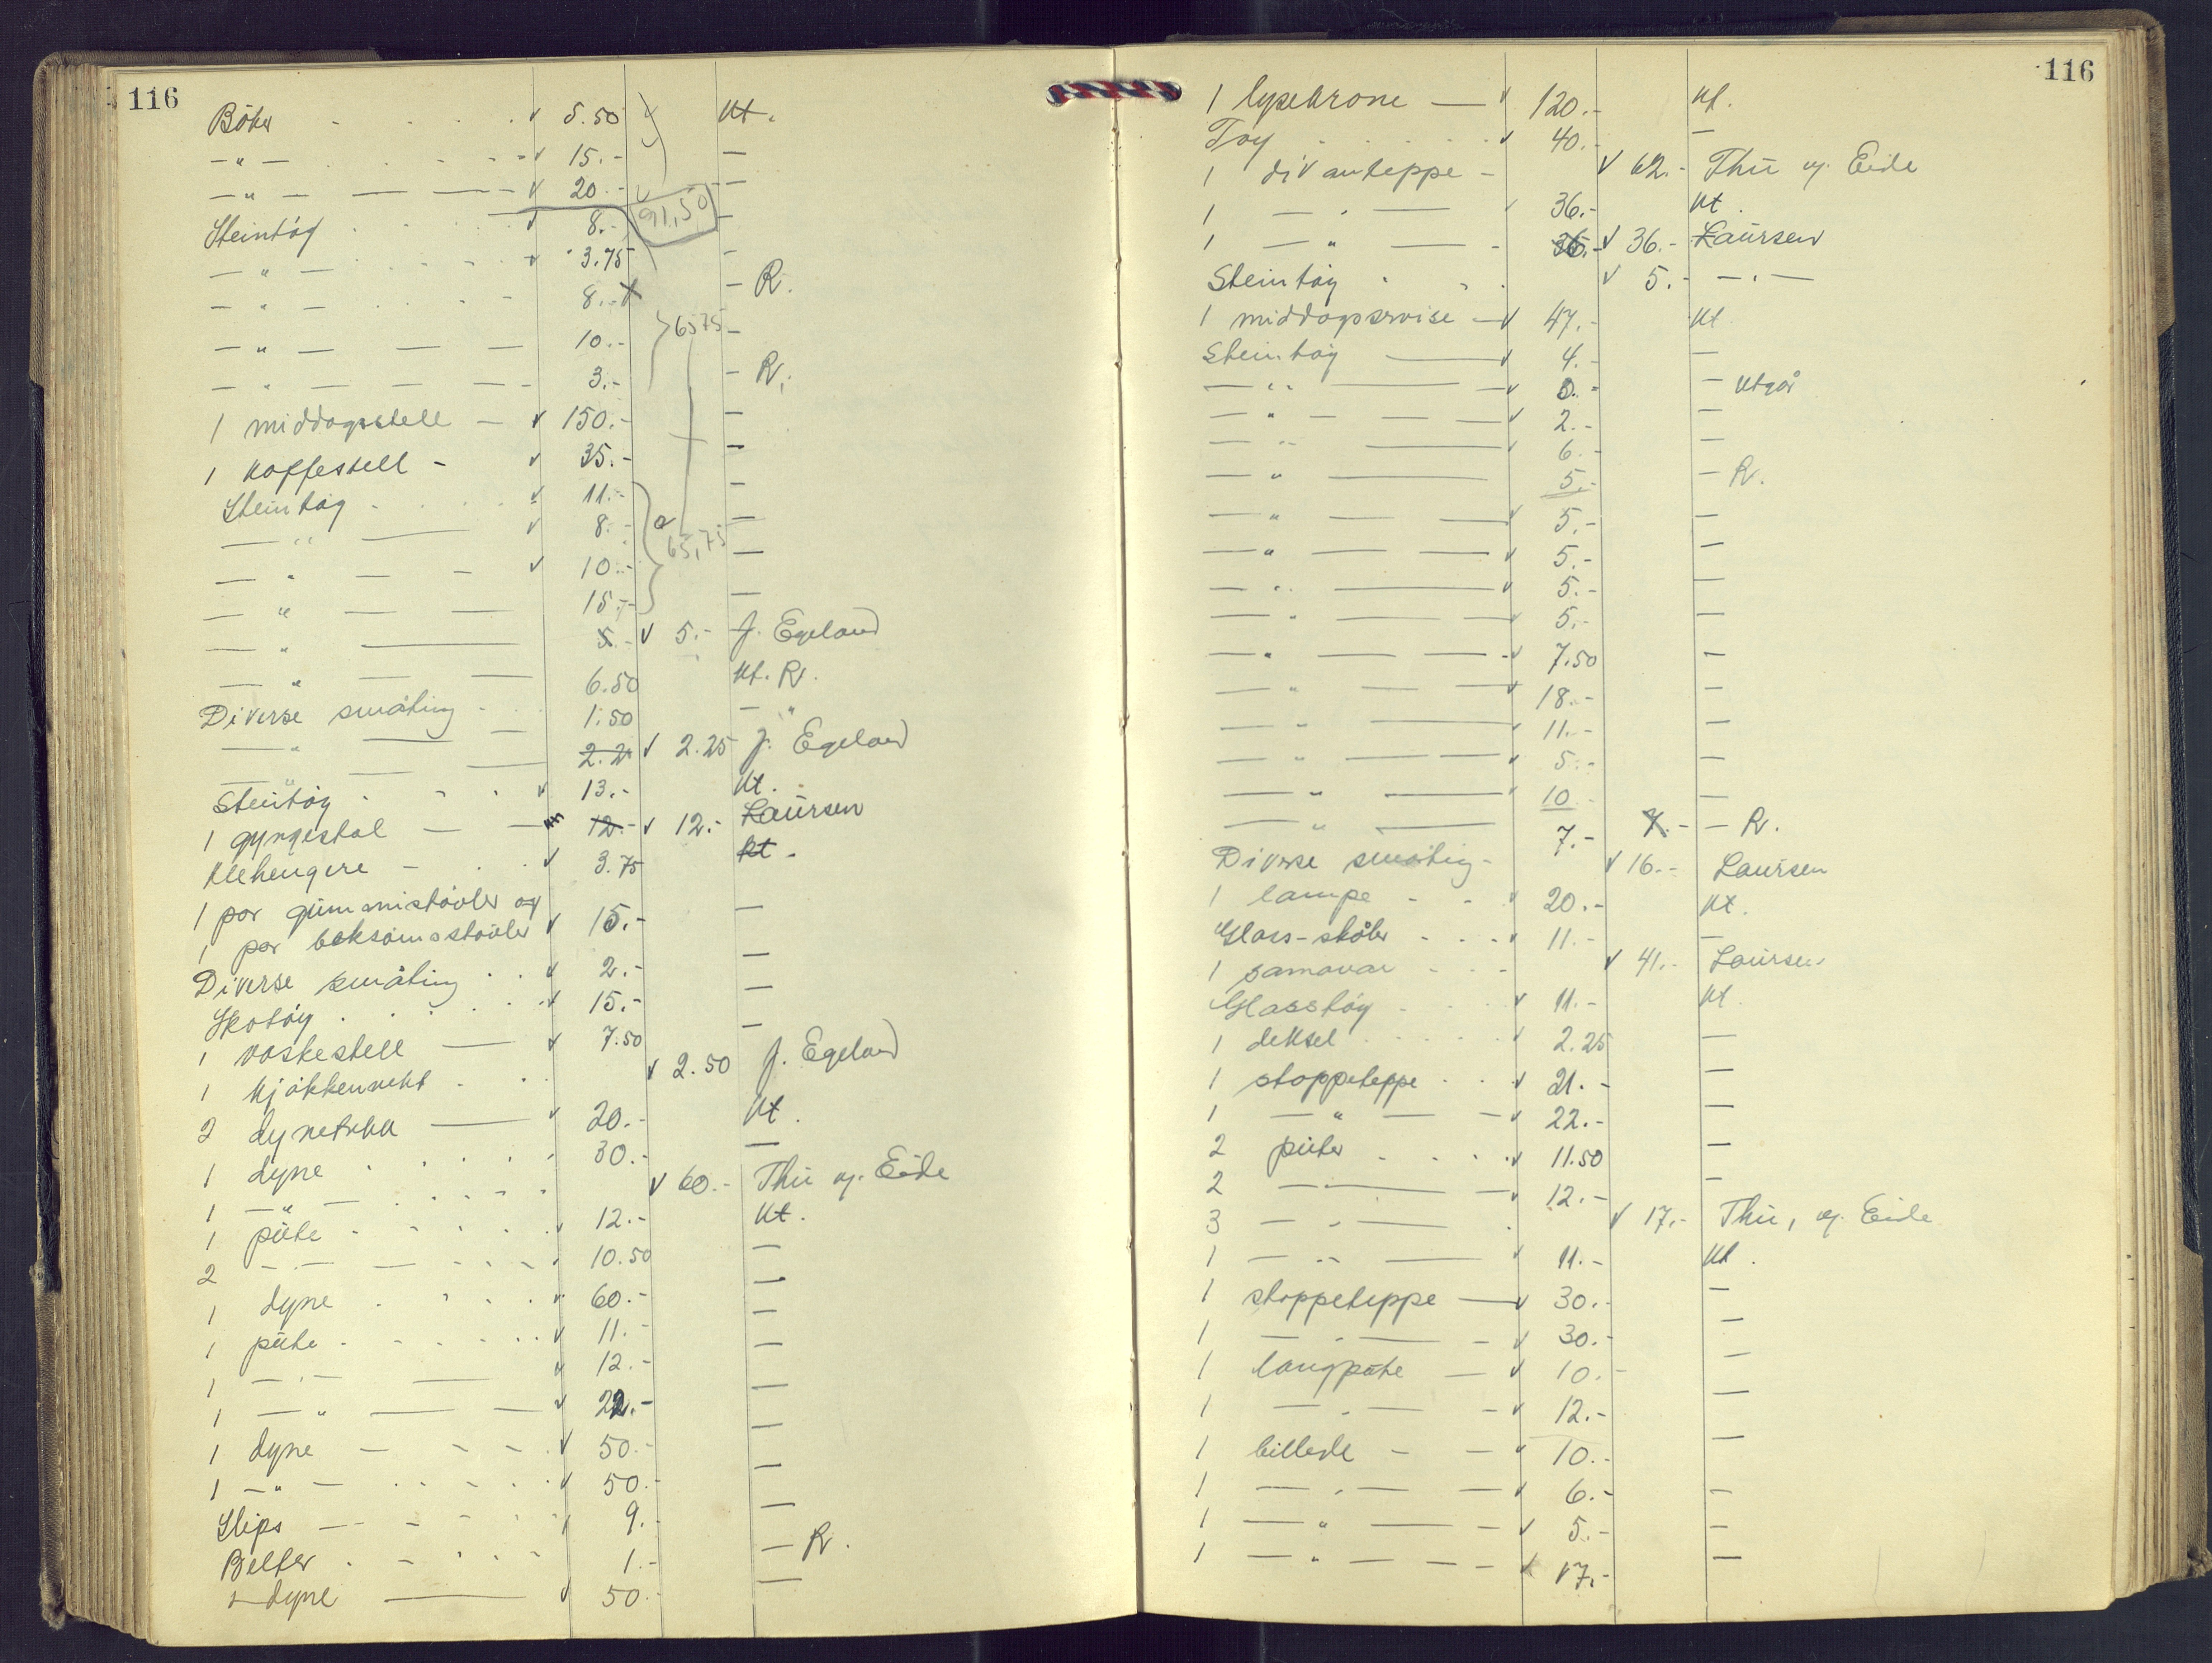 116
Bøker . . . . v 5.50 Kt.
-"- . . . - v 15.- —
-"- — — v 20.- —
91,50
Steintøy . . . . v 8.- -
-"- . . . . v 3.75 -
-"- . . . - 8.- - R.
-"- — — 10.- 6575 -
-"- — — — - 3.- - R.
1 middagsstell — v 150.- —
1 kaffestell - v 35.- —
Steintøy . . . v 11.- -
—"— v 8.- —
65,75
—"— — - v 10.- —
—"— — — 15.- —
—"— —— 5.- v 5.- J. Egeland
—"— — — 6.50 Kt. R.
Diverse småting - . . 1.50 — "
—"— — — 2.2 v 2.25 J. Egeland
Steintøy . - . v 13.- Kt.
1 gyngestol — — 12.- v 12.- Laursen
Klehengere — . v 3.75 Kt.
1 par gummistøvler og
1 par beksømsstøvler v 15.- —
Diverse småting . . v 2.- —
Skotøy . . . . v 15.- —
1 vaskestell — v 7.50 —
1 kjøkkenvekt . . v 2.50 J. Egeland
2 dynetrekk — v 20.- Kt.
1 dyne . . . . 30.- —
1 -"- . . . . v 60.- Thu og Eide
1 pute . . . . . 12.- Kt.
2 -"- — . . . 10.50 —
1 dyne . . . v 60.- —
1 pute . . . . v 11.- —
1 -"- — v 12.- —
1 -"- — — v 22.- —
1 dyne — - - v 50.- —
1 -"- . . . . v 50.- —
Slips — - - . . 9.- —
Belter . - . . . 1.- — R.
1 dyne —— v 50.- —
116
1 lysekrone — v 120.- Kt.
Tøy . . . . v 40.- —
1 divanteppe - v 62.- Thu og Eide
1 -"- — 36.- Kt.
1 -"- — - 36.- v 36.- Laursen
Steintøy . . . v 5.- -"-
1 middagsservise — v 47.- Kt
Steintøy —— v 4.- —
—"— —— v 0.- — Utgår
—"— — — v 2.- —
—"— —— v 6.- —
—"— —— 5.- — R.
—"— — — v 5.- —
—"— — — v 5.- —
—"— —— v 5.- —
—"— —— v 5.- —
—"— — — v 7.50 —
—"— — — v 18.- —
—"— —— v 11.- —
—"— — — v 5.- —
—"— —— 10.- —
—"— —— 7.- 7.- — R.
Diverse småting - v 16.- Laursen
1 lampe - - v 20.- Kt.
Glass-skåler . . . v 11.- —
1 samovar . . - v 41.- Laursen
Glasstøy . . . v 11.- Kt.
1 deksel . . . . v 2.25 —
1 stoppeteppe . . v 21.- —
1 -"- — v 22.- —
2 puter . . . v 11.50 —
2 -"- — v 12.- —
3 -"- — . v 17.- Thu, og Eide
1 -"- — v 11.- Kt.
1 stoppeteppe — v 30.- —
1 -"- — - v 30.- —
1 langpute — v 10.- —
1 -"- - v 12.- —
1 billede - - v 10.- —
1 -"- — — v 6.- —
1 -"- — - v 5.- —
1 -"- - - — v 17.- —